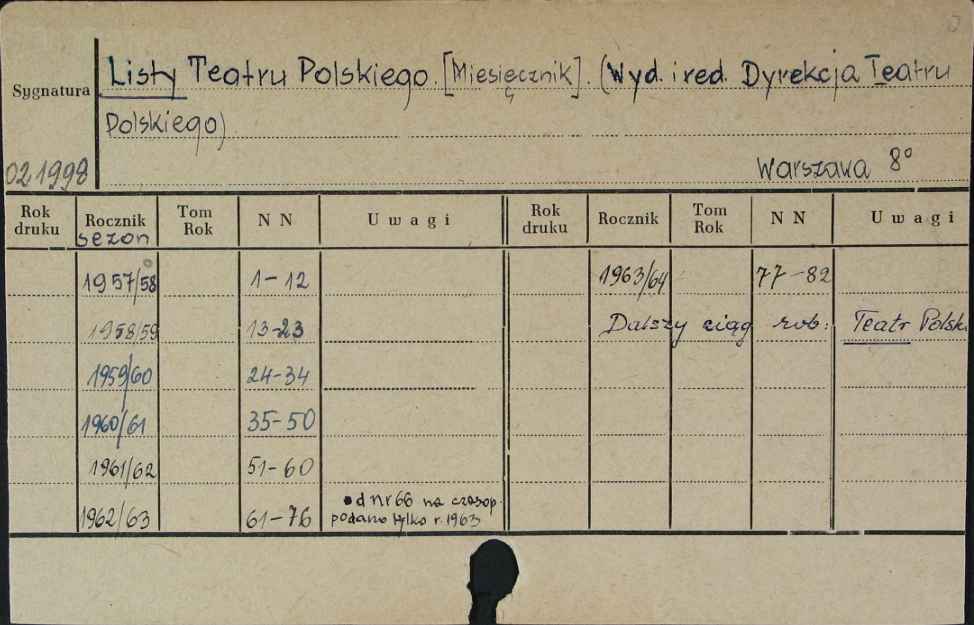 Listy Teatru Polskiego. [Miesięcznik]. (Wyd. i red. Dyrekcja Teatru
Sygnatura
Polskiego)
02.1998
Warszawa 8°
Rok druku Rocznik Tom Rok N N U w a g i Rok druku Rocznik Tom Rok N N U w a g i
sezon
1957/58 1-12 1963/64 77-82
1958/59 13-23 Dalszy ciąg rob: Teatr Polsk
1959/60 24-34
1960/61 35-50
1961/62 51-60
1962/63 61-76 od nr 66 na czasop.
podano tylko r. 1963